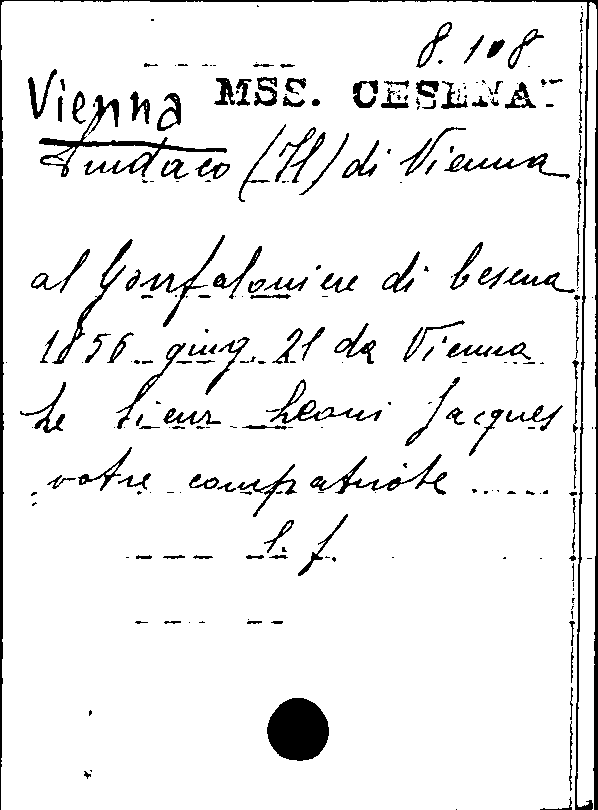 8.108
Vienna MSS. CESENA
Sindaco (Il) di Vienna
al Gonfaloniere di Cesena
1856 giug. 21 da Vienna
Le Sieur Leoni Jacques
votre compatriote .....
L. f.